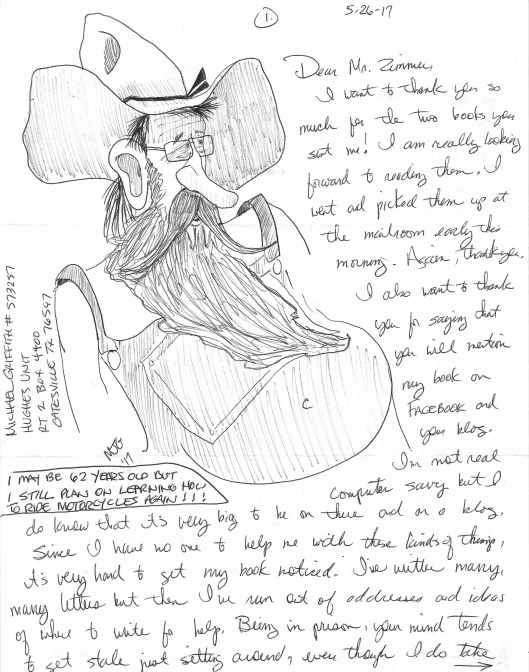 1.
5-26-17
Dear Mr. Zimmer,
I want to thank you so
much for the two books you
sent me! I am really looking
forward to reading them. I
went and picked them up at
the mailroom early this
morning. Again, thank you.
I also want to thank
you for saying that
you will mention
my book on
FACEBOOK and
your blog.
I'm not real
computer savvy but I
do know that it's very big to be on there and on a blog.
Since I have no one to help me with these kinds of things,
it's very hard to get my book noticed. I've written many,
many letters but then I've run out of addresses and ideas
of where to write for help. Being in prison, your mind tends
to get stale just setting around, even though I do take
MICHAEL GRIFFITH # 573257
HUGHES UNIT
RT 2 BOX 4400
GATESVILLE TX 76597
'17
C
I MAY BE 62 YEARS OLD BUT
I STILL PLAN ON LEARNING HOW
TO RIDE MOTORCYCLES AGAIN!!!